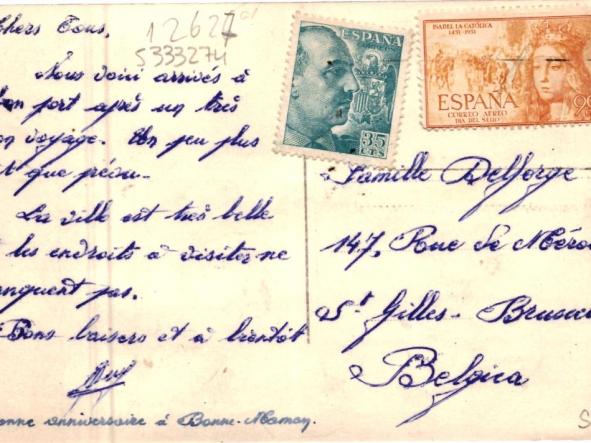 Chers Tous,
Nous voici arrivés à
bon port après un très
bon voyage. Un peu plus
tôt que prévu.
La ville est très belle
et les endroits à visiter ne
manquent pas.
Bons baisers et à bientôt
bonne anniversaire à Bonne-Maman.
12627
5333274
ESPAÑA
35
CTS
ISABEL LA CATÓLICA
1451-1951
ESPAÑA
CORREO AEREO
DIA DEL SELLO
90
Famille Delforge
147, Rue de Méro
St Gilles - Bruxe
Belgica
S